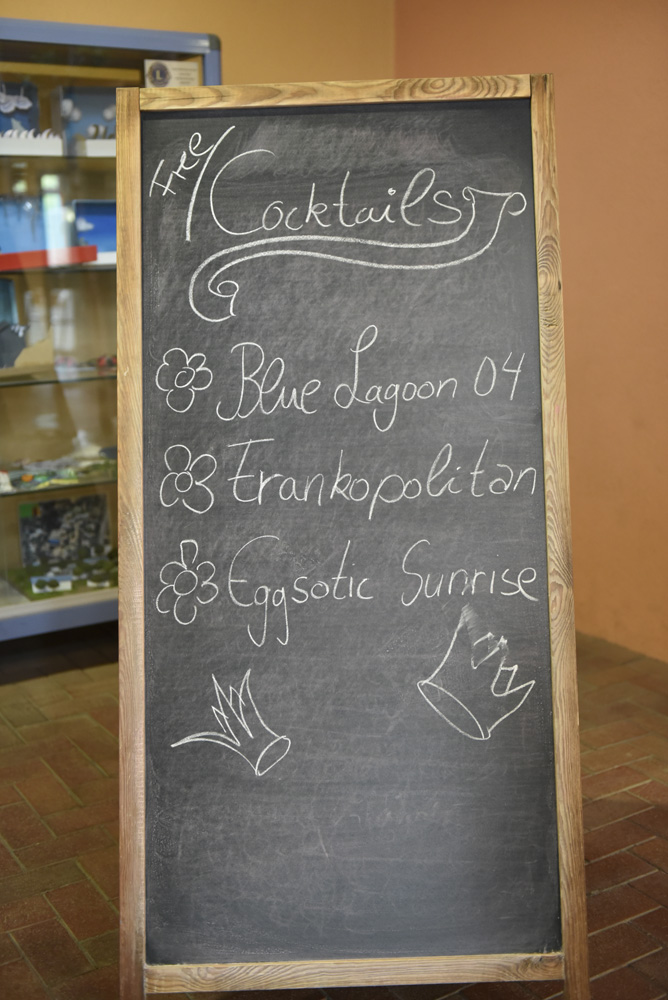 Free Cocktails
Blue Lagoon 04
Frankopolitan
Eggsotic Sunrise